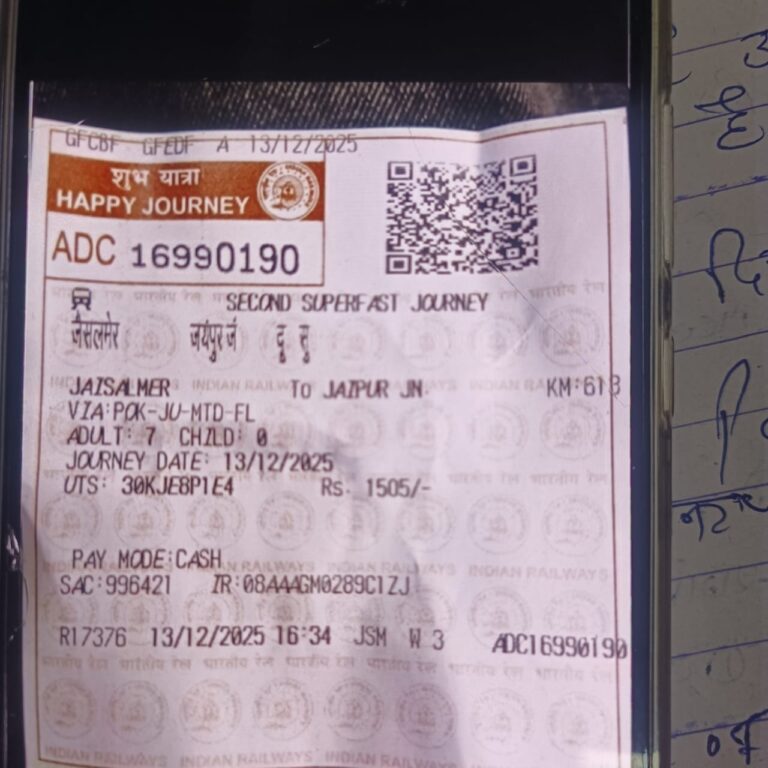 GFCBF GFEDF A 13/12/2025
शुभ यात्रा
HAPPY JOURNEY
ADC 16990190
SECOND SUPERFAST JOURNEY
जैसलमेर जयपुर जं दू सु
JAISALMER To JAIPUR JN. KM:613
VIA:POK-JU-MTD-FL
ADULT: 7 CHILD: 0
JOURNEY DATE: 13/12/2025
UTS: 30KJE8P1E4 Rs. 1505/-
PAY MODE:CASH
SAC:996421 IR:08AAAGM0289C1ZJ
R17376 13/12/2025 16:34 JSM W 3 ADC16990190
भारतीय रेल भारतीय रेल भारतीय रेल भारतीय रेल भारतीय रेल
INDIAN RAILWAYS INDIAN RAILWAYS INDIAN RAILWAYS